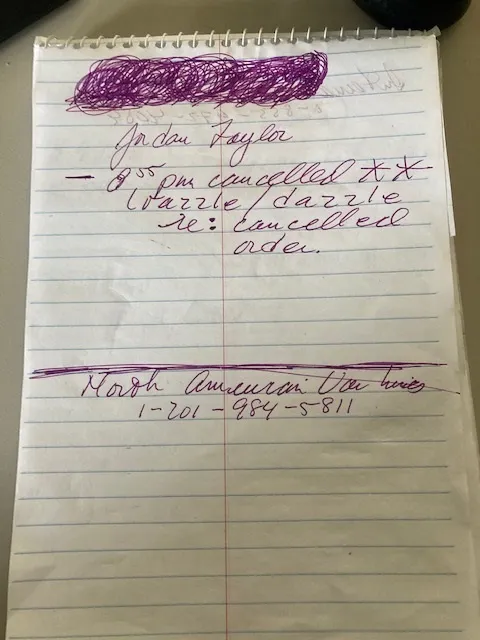 Jordan Taylor
— 8:55 pm cancelled **
razzle/dazzle
re: cancelled
order.
North American Van Lines
1-201-984-5811